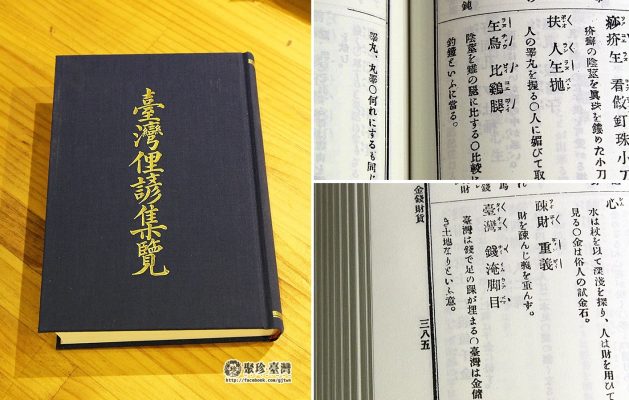 臺灣俚諺集覽
聚珍臺灣
http://facebook.com/gjtwn
看做釘珠小刀
疥癬の陰莖を眞珠を鏤めた小刀
扶 人
人の睾丸を握る〇人に媚びて取
鳥 比鷄腿
陰莖を雞の腿に比する〇比較に
釣鐘といふに當る。
睾丸、丸睾〇何れにするも同じ
心
水は杖を以て深淺を探り、人は財を用ひて
見る〇金は俗人の試金石。
疎財 重義
財を疎んじ義を重んず。
臺灣 錢淹脚目
臺灣は錢で足の踝が埋まる〇臺灣は金儲
き土地なりといふ意。
金錢財貨
三八五